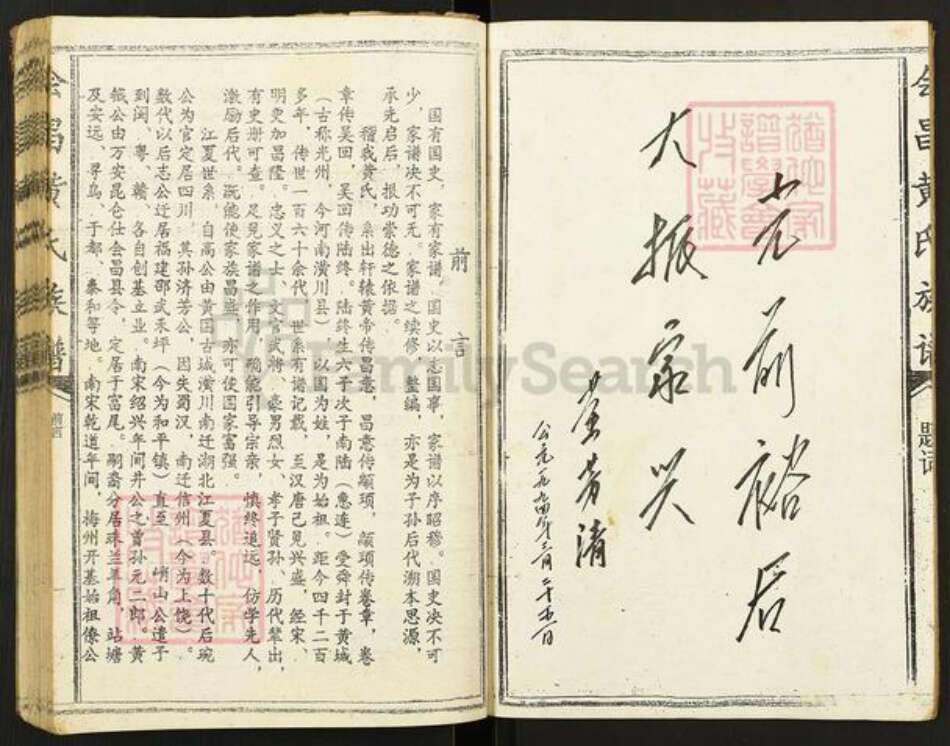 会昌黄氏族谱
题词
光前裕后
大振家兴
黄芳清
公元一九九四年三月二十五日
前言
国有国史,家有家谱,国史以志国事,家谱以序昭穆。国史决不可
少,家谱决不可无。家谱之续修、整编,亦是为子孙后代溯本思源,
承先启后,报功崇德之依据。
稽我黄氏,系出轩辕黄帝传昌意,昌意传颛顼,颛顼传卷章,卷
章传吴回,吴回传陆终。陆终生六子次子南陆(惠连)受舜封于黄城
(古称光州,今河南潢川县),以国为姓,是为始祖。距今四千二百
多年,传世一百六十余代,世系有谱记载,至汉唐已见兴盛,经宋、
明更加昌隆。忠义之士、文官武将、豪男烈女、孝子贤孙、历代辈出,
有史册可查。足见家谱之作用,确能引导宗亲,慎终追远,仿学先人,
激励后代。既能使家族昌盛,亦可使国家富强。
江夏世系,自高公由黄国古城潢川南迁湖北江夏县。数十代后琬
公为官定居四川,其孙济芳公,因失蜀汉,南迁信州(今为上饶)。
数代以后志公迁居福建邵武禾坪(今为和平镇)直至 峭山公遣子
到闽、粤、赣,各自创基立业。南宋绍兴年间井公之曾孙元二郎。黄
公由万安昆仑仕会昌县令,定居于富尾。嗣裔分居珠兰羊角,站塘
及安远、寻乌、于都、泰和等地。南宋乾道年间,梅州开基始祖僚公
会昌黄氏族谱
前言
FamilySearch